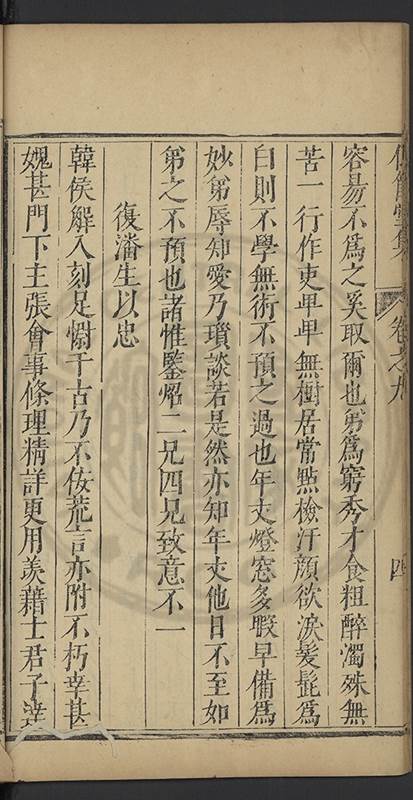 卷之九
四
容易不為之奚取爾也弟為窮秀才食粗醉濁殊無
苦一行作吏卑卑無樹居常點檢汗顏欲淚髮髭為
白則不學無術不預之過也年丈燈窓多暇早備為
妙弟辱知愛乃瑣談若是然亦知年丈他日不至如
弟之不預也諸惟鑒炤二兄四兄致意不一
復潘生以忠
韓侯解入刻足慰千古乃不佞荒言亦附不朽幸甚
媿甚門下主張會事條理精詳更用羨藉士君子達